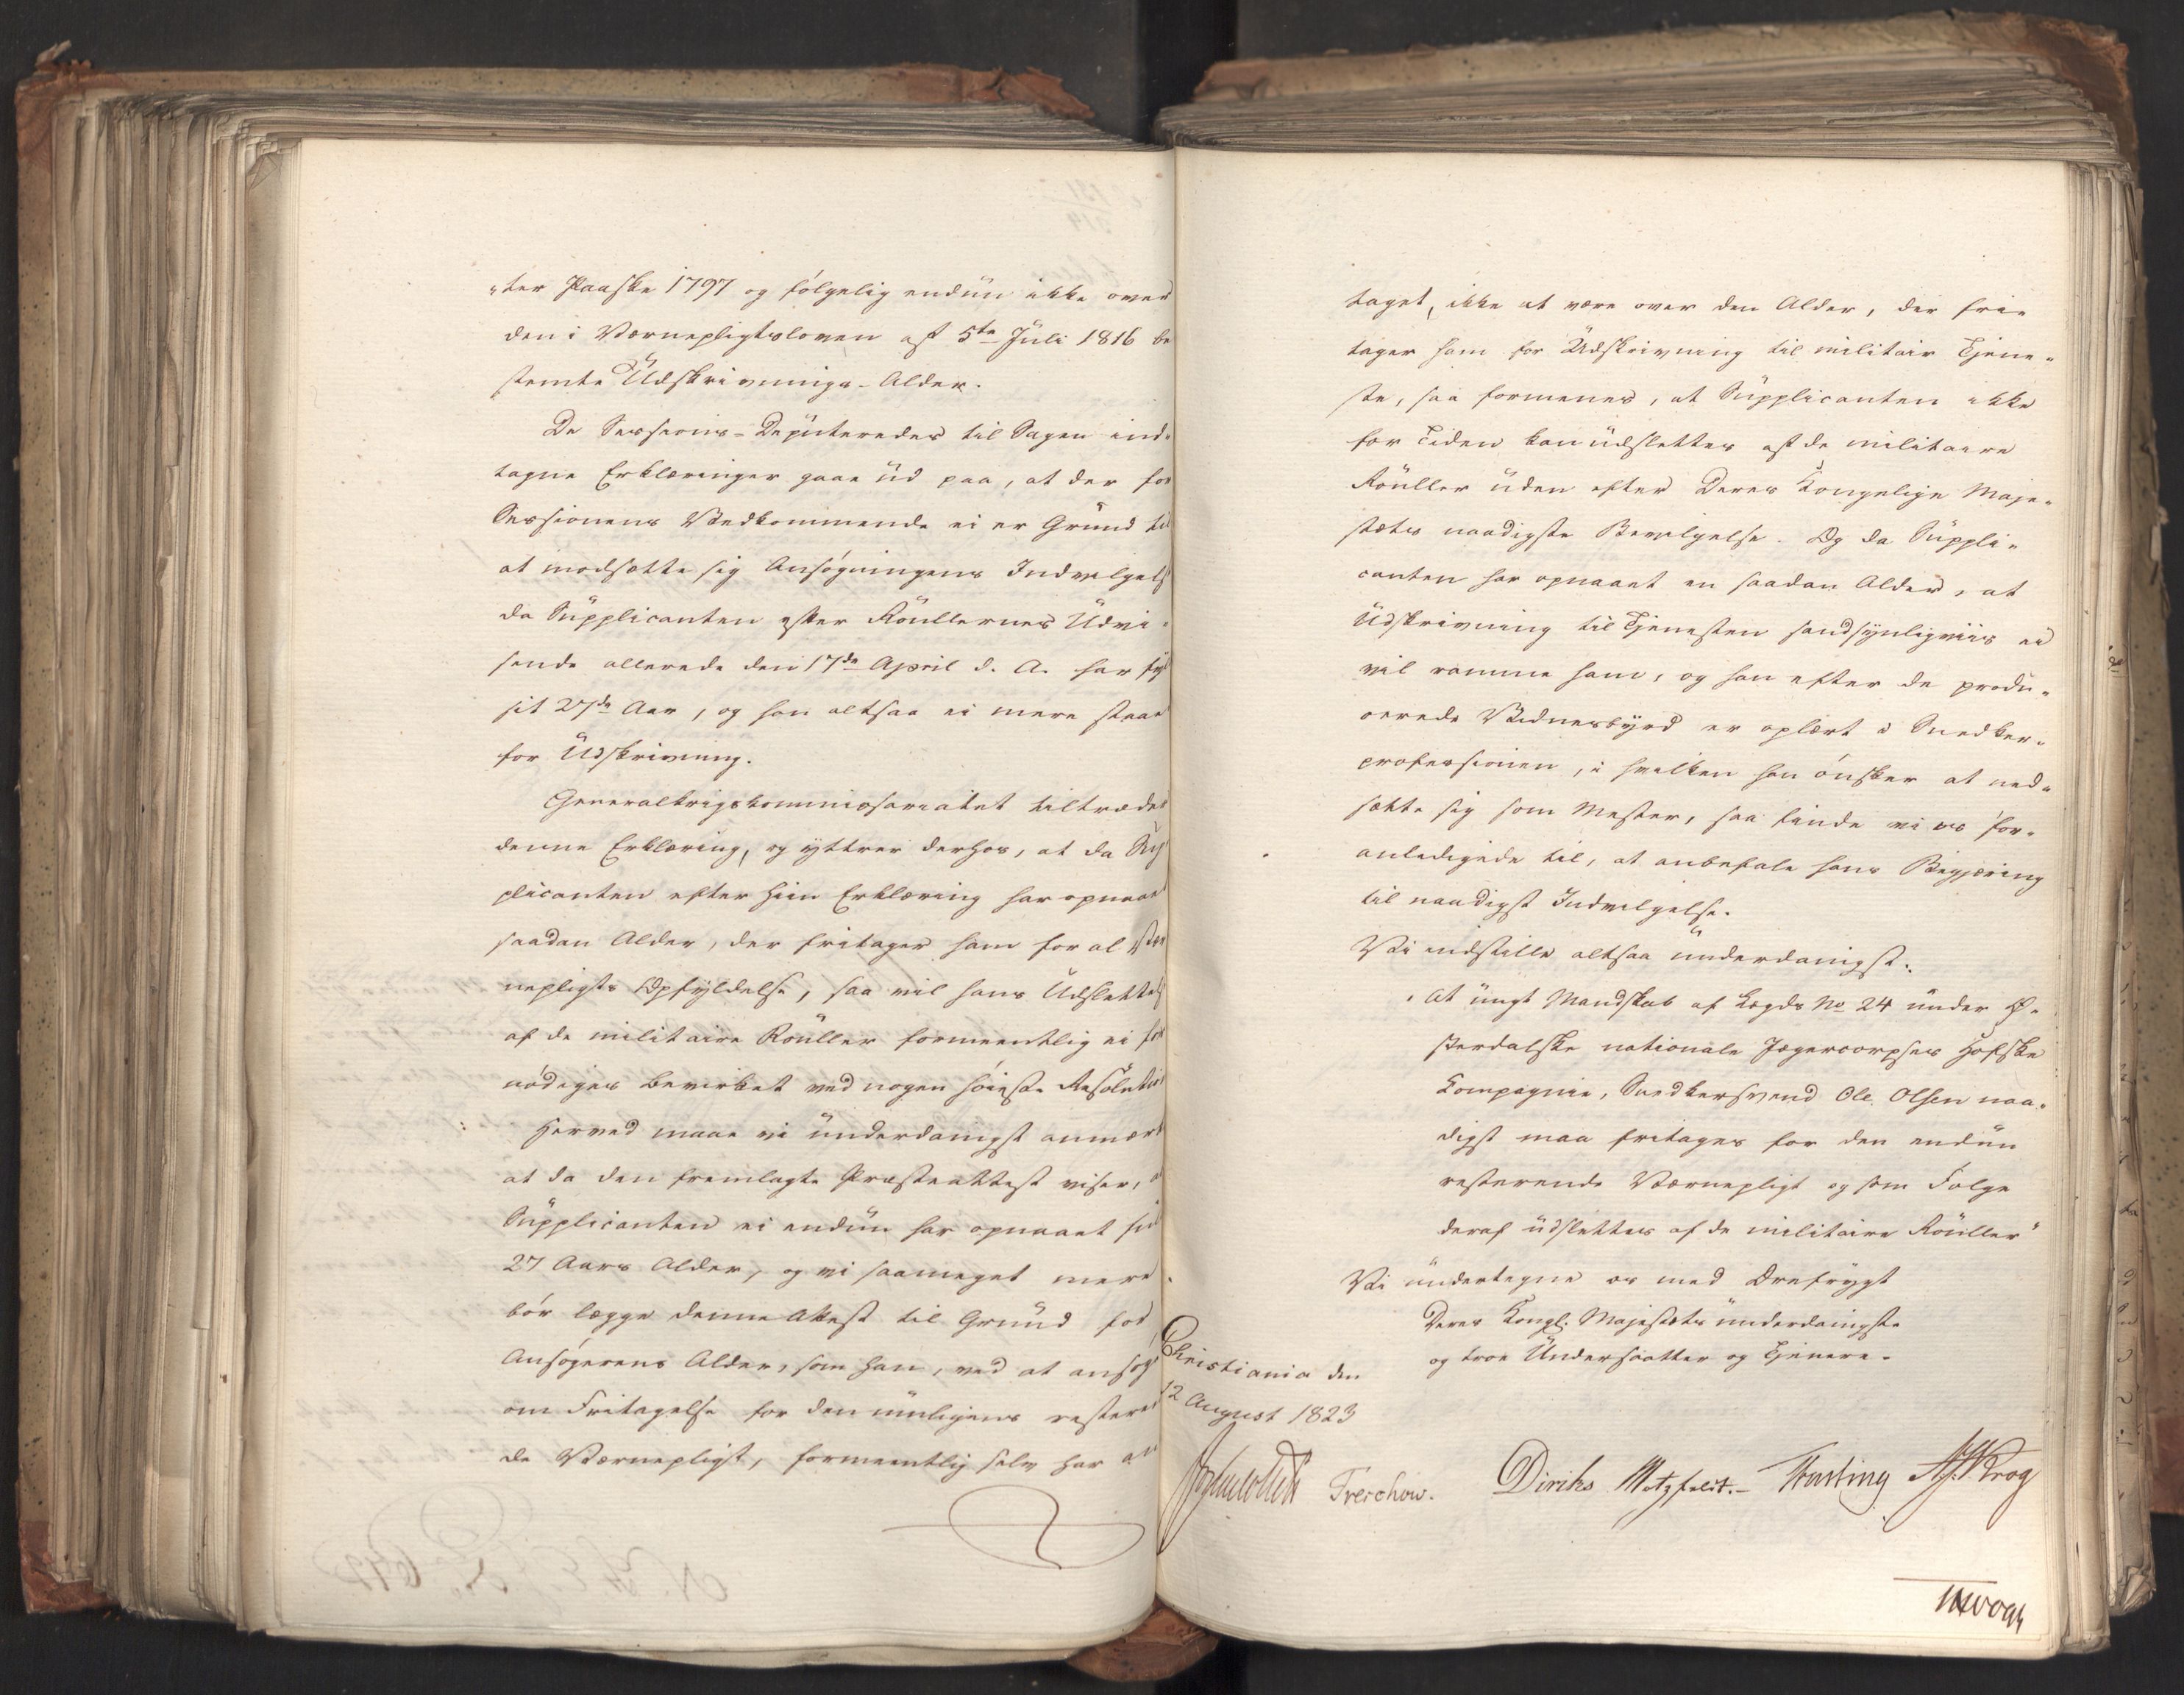 „ter Paaske 1797 og følgelig endün ikke over
den i Værnepligtsloven af 5te Jüli 1816 be
stemte Üdskrivnings-Alder.
De Sessions-Depüteredes til Sagen ind„
tagne Erklæringer gaae üd paa, at der for
Sessionens Vedkommende ei er Gründ til
at modsætte sig Ansøgningens Indvilgels
da Süpplicanten efter Roüllernes Üdvi„
sende allerede den 17de April d. A. har fyl
sit 27de Aar, og han altsaa ei mere staae
for Üdskrivning.
Generalkrigskommissariatet tiltræder
denne Erklæring, og yttrer derhos, at da Süp
plicanten efter hiin Erklæring har opnaaet
saadan Alder, der fritager ham for al Vær
nepligts Opfyldelse, saa vil hans Üdslettels
af de militaire Roüller formeentlig ei for
nødiges bevirket ved nogen høieste Resolütio
Herved maae vi ünderdanigst anmærk
at da den fremlagte Præsteattest viser, a
Süpplicanten ei endün har opnaaet sit
27 Aars Alder, og vi saameget mere
bør lægge denne Attest til Gründ for
Ansøgerens Alder, som han, ved at ansøg
om Fritagelse for den müligens resteren
de Værnepligt, formeentlig selv har an
taget, ikke at være over den Alder, der fri„
tager ham for Üdskrivning til militair Tjene„
ste, saa formenes, at Süpplicanten ikke
for Tiden kan üdslettes af de militaire
Roüller üden efter Deres Kongelige Maje„
stæts naadigste Bevilgelse. Og da Süppli„
canten har opnaaet en saadan Alder, at
Üdskrivning til Tjenesten sandsynligviis ei
vil ramme ham, og han efter de prodü„
cerede Vidnesbyrd er oplært i Snedker„
professionen, i hvilken han ønsker at ned„
sætte sig som Mester, saa finde vi os for„
anledigede til, at anbefale hans Begjæring
til naadigst Indvilgelse.
Vi indstille altsaa ünderdanigst:
„At üngt Mandskab af Lægds No 24 ünder Ø„
sterdalske nationale Jægercorpses Hofske
Kompagnie, Snedkersvend Ole Olsen naa„
digst maa fritages for den endün
resterende Værnepligt og som Følge
deraf üdslettes af de militaire Roüller“
Vi ündertegne os med Ærefrygt
Deres Kongl. Majestæts ünderdanigste
og troe Ündersaatter og Tjenere.
Christiania den
12 August 1823
Treschow. Diriks Motzfeldt. Fasting Krog